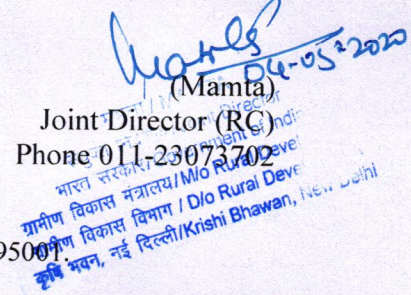 Mamta
04-05-2020
(Mamta)
Joint Director (RC)
Phone 011-23073702
भारत सरकार/Government of Indi
ग्रामीण विकास मंत्रालय/M/o Rural Deve
ग्रामीण विकास विभाग / D/o Rural Deve
कृषि भवन, नई दिल्ली/Krishi Bhawan, New Delhi
95001.